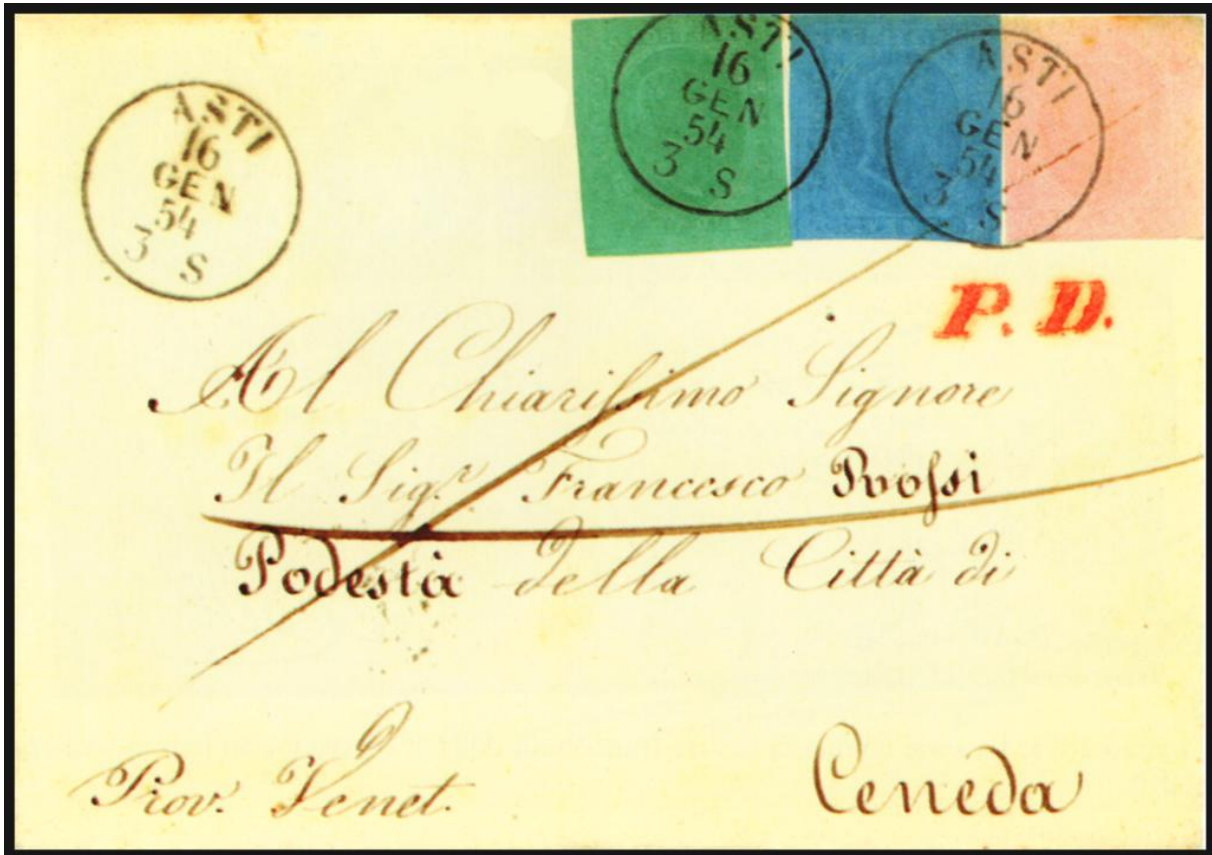 ASTI
16
GEN
54
3 S
ASTI
16
GEN
54
3 S
ASTI
16
GEN
54
3 S
P. D.
Al Chiariſsimo Signore
Il Sig.r Francesco Roſsi
Podestà della Città di
Ceneda
Prov. Venet.